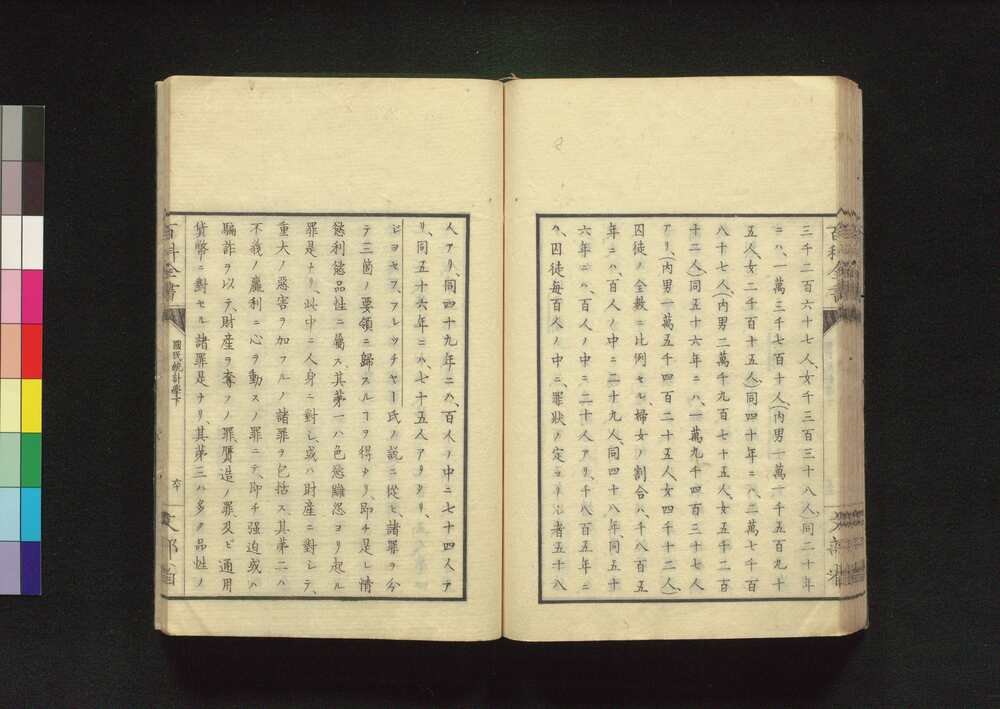 三千二百六十七人、女千三百三十八人、同二十年
ニハ、一萬三千七百十人、(內男一萬一千五百九十
五人、女二千百十五人)同四十年ニハ、二萬七千百
八十七人、(內男二萬千九百七十五人、女五千二百
十二人)同五十六年ニハ、一萬九千四百三十七人
アリ、(內男一萬五千四百二十五人、女四千十二人)、
囚徒ノ全數ニ比例セル婦女ノ割合ハ、千八百五
年ニハ、百人ノ中ニ二十九人、同四十八年、同五十
六年ニハ、百人ノ中ニ二十人アリ、千八百五年ニ
ハ、囚徒每百人ノ中ニ、罪狀ノ定マリシ者五十八
人アリ、同四十九年ニハ、百人ノ中ニ七十四人ア
リ、同五十六年ニハ、七十五人アリタリ、
ジヨセフ、フレッチヤー氏ノ說ニ從ヒ、諸罪ヲ分
テ三箇ノ要領ニ歸スルヿヲ得ヘリ、即チ是レ情
慾利慾品性ニ屬ス、其第一ハ色慾雠忽ヨリ起ル
罪是ナリ、此中ニ人身ニ對シ、或ハ財產ニ對シテ、
重大ノ惡害ヲ加フルノ諸罪ヲ包括ス、其第二ハ
不義ノ贏利ニ心ヲ動スノ罪ニテ、即チ强迫或ハ
騙詐ヲ以テ、財產ヲ奪フノ罪贋造ノ罪及ビ通用
貨幣ニ對セル諸罪是ナリ、其第三ハ多ク品性ノ
百科全書
國民統計學下
六十
文部省